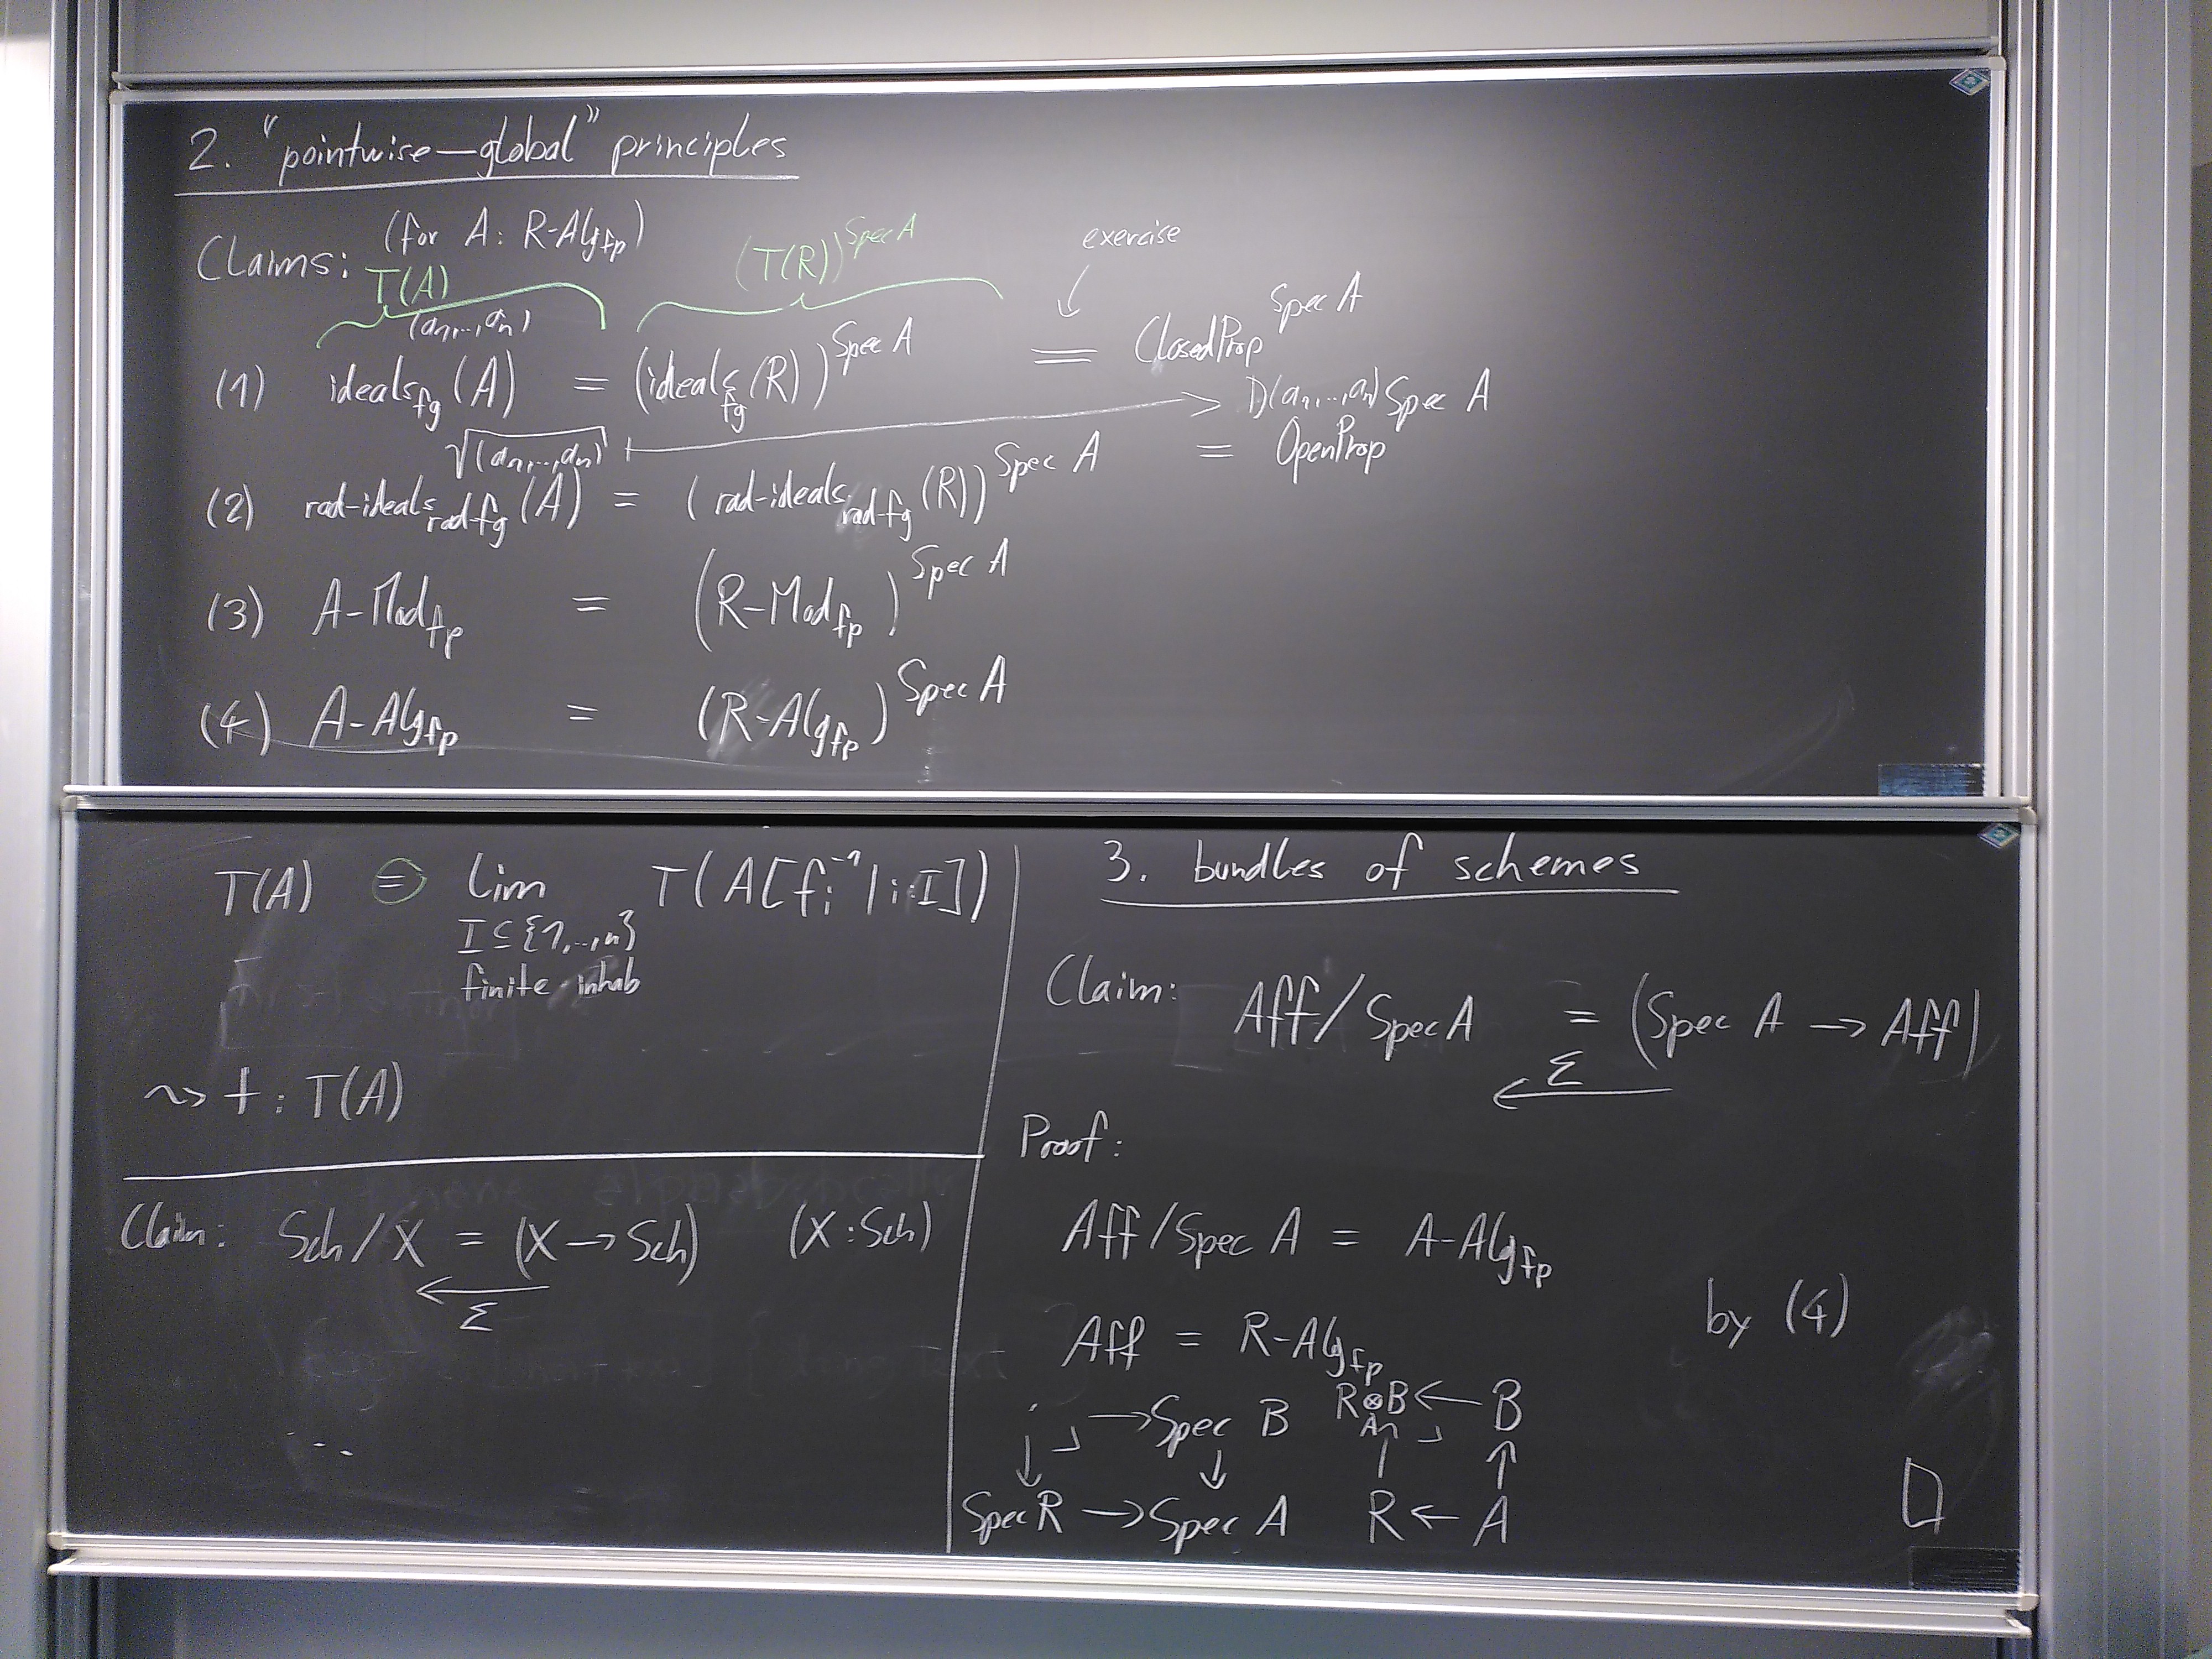 2. "pointwise—global" principles
Claims: (for A : R-Alg_fp)
T(A) (T(R))^Spec A exercise
(a_1,...,a_n)
(1) ideals_fg (A) = (ideals_fg (R))^Spec A = ClosedProp^Spec A
√(a_1,...,a_n) ↦ D(a_1,...,a_n)
(2) rad-ideals_rad-fg (A) = (rad-ideals_rad-fg (R))^Spec A = OpenProp^Spec A
(3) A-Mod_fp = (R-Mod_fp)^Spec A
(4) A-Alg_fp = (R-Alg_fp)^Spec A
T(A) = lim T(A[f_i^-1 | i : I])
I ⊆ {1,...,n}
finite inhab
⇝ t : T(A)
Claim: Sch/X = (X → Sch) (X : Sch)
← Σ
...
3. bundles of schemes
Claim: Aff/Spec A = (Spec A → Aff)
← Σ
Proof:
Aff/Spec A = A-Alg_fp
by (4)
Aff = R-Alg_fp
· ⌟ → Spec B R ⊗_A B ← B
↓ ↓ ↑ ↑
Spec R → Spec A R ← A □